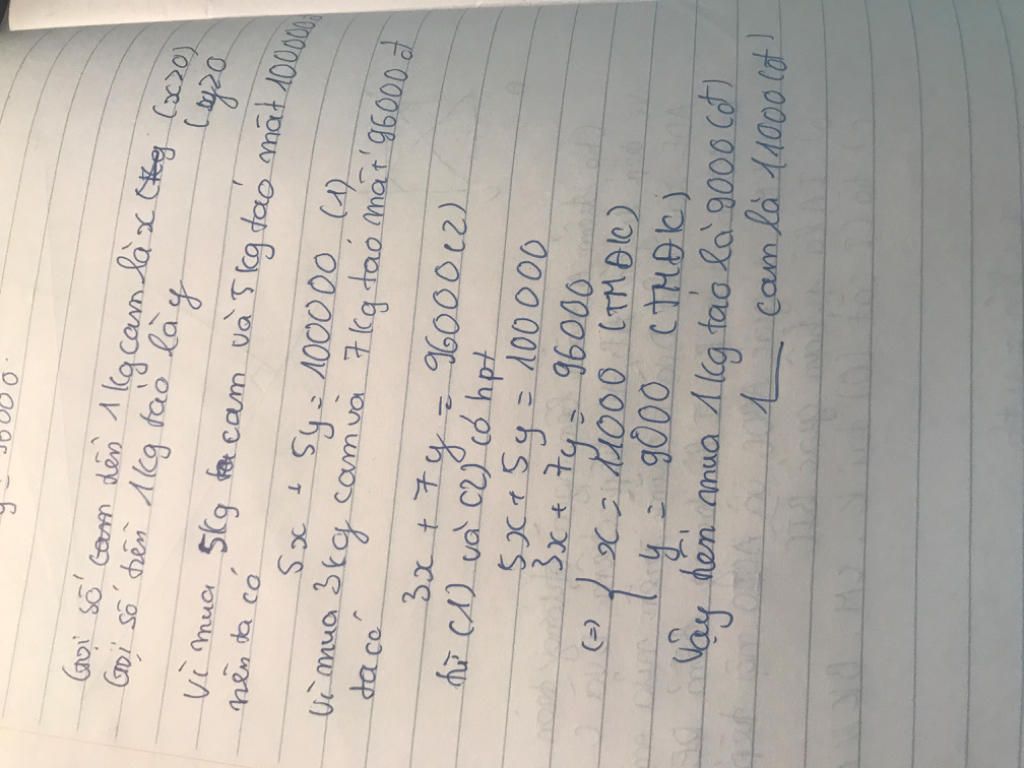 Gọi số tiền 1 kg cam là x (x>0)
Gọi số tiền 1kg táo là y (y>0
Vì mua 5kg cam và 5kg táo mất 100000đ
nên ta có
5x + 5y = 100000 (1)
Vì mua 3kg cam và 7kg táo mất 96000đ
ta có
3x + 7y = 96000 (2)
từ (1) và (2) có hpt
5x + 5y = 100000
3x + 7y = 96000
(=) { x = 11000 (TMĐK)
y = 9000 (TMĐK)
Vậy tiền mua 1kg táo là 9000(đ)
1 cam là 11000(đ)